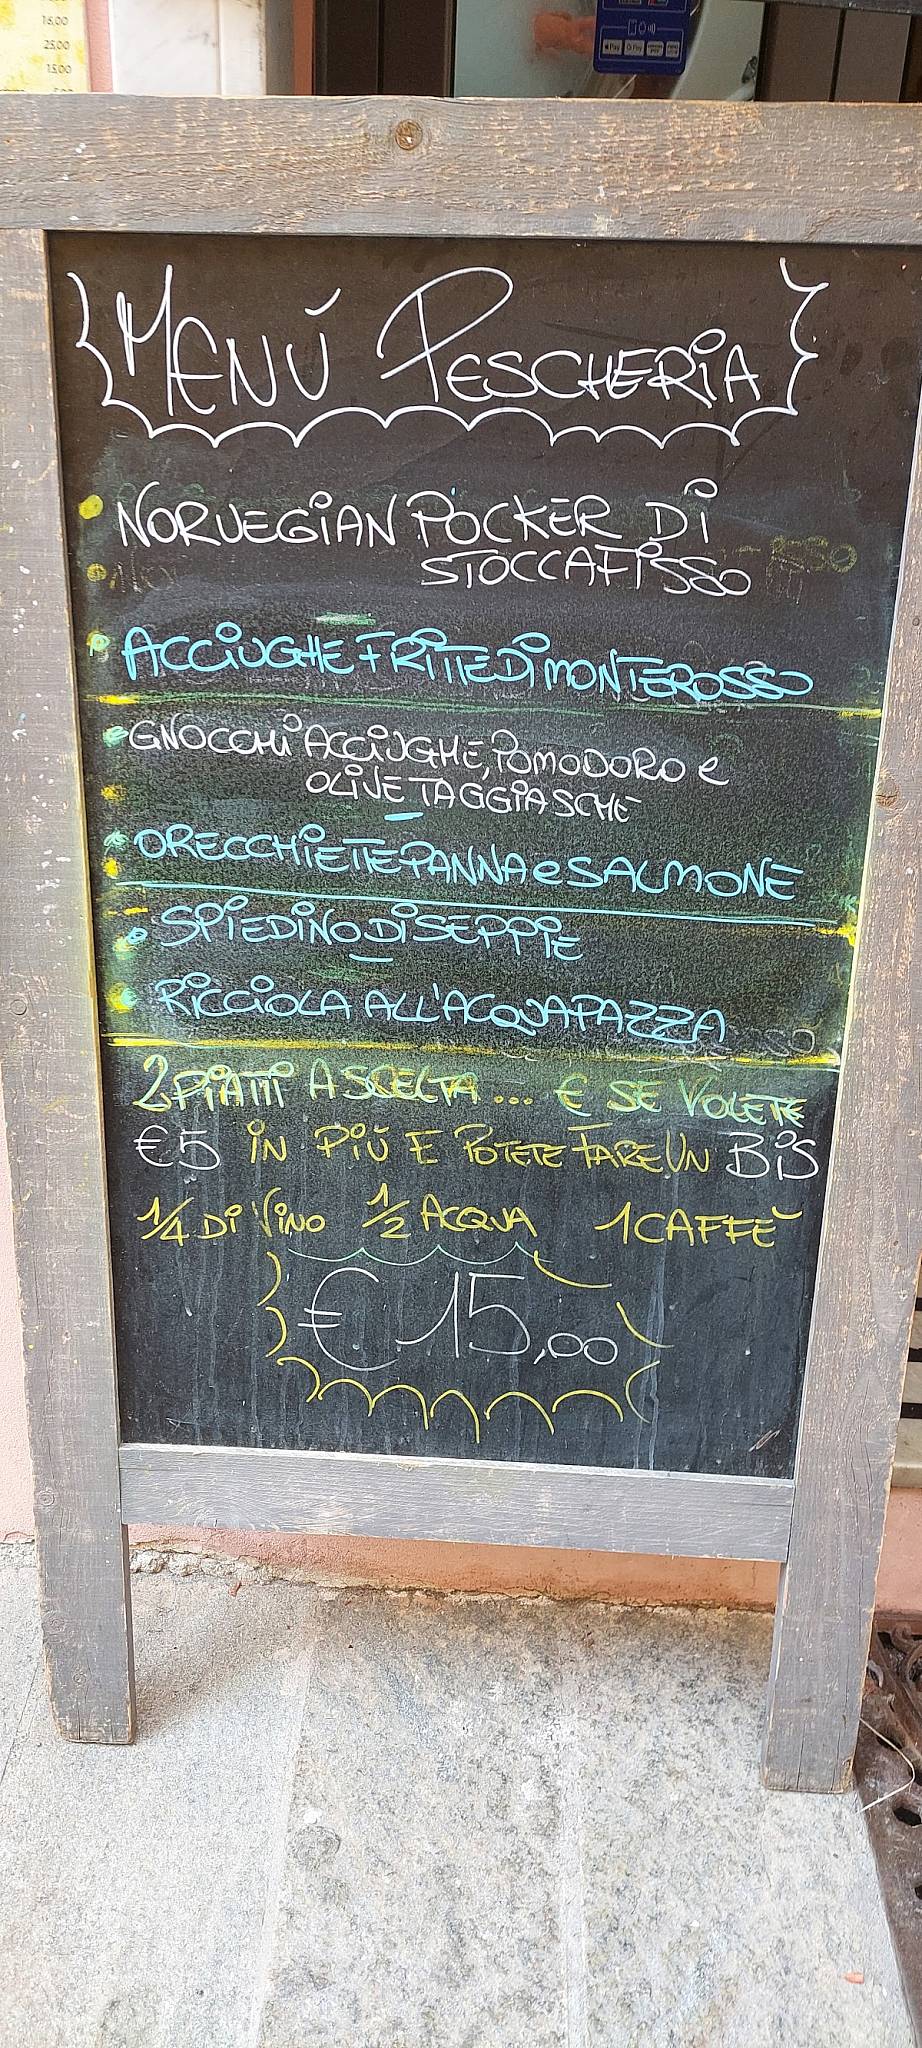 16,00
25,00
15,00
Pay
Pay
MENÚ PESCHERIA
NORVEGIAN POCKER DI
STOCCAFISSO
ACCIUGHE FRITTE DI MONTEROSSO
GNOCCHI ACCIUGHE, POMODORO e
OLIVE TAGGIASCHE
ORECCHIETTE PANNA e SALMONE
SPIEDINO DI SEPPIE
RICCIOLA ALL'ACQUAPAZZA
2 PIATTI A SCELTA ... € SE VOLETE
€5 IN PIÙ E POTETE FARE UN BIS
1/4 DI VINO 1/2 ACQUA 1 CAFFÈ
€ 15,00